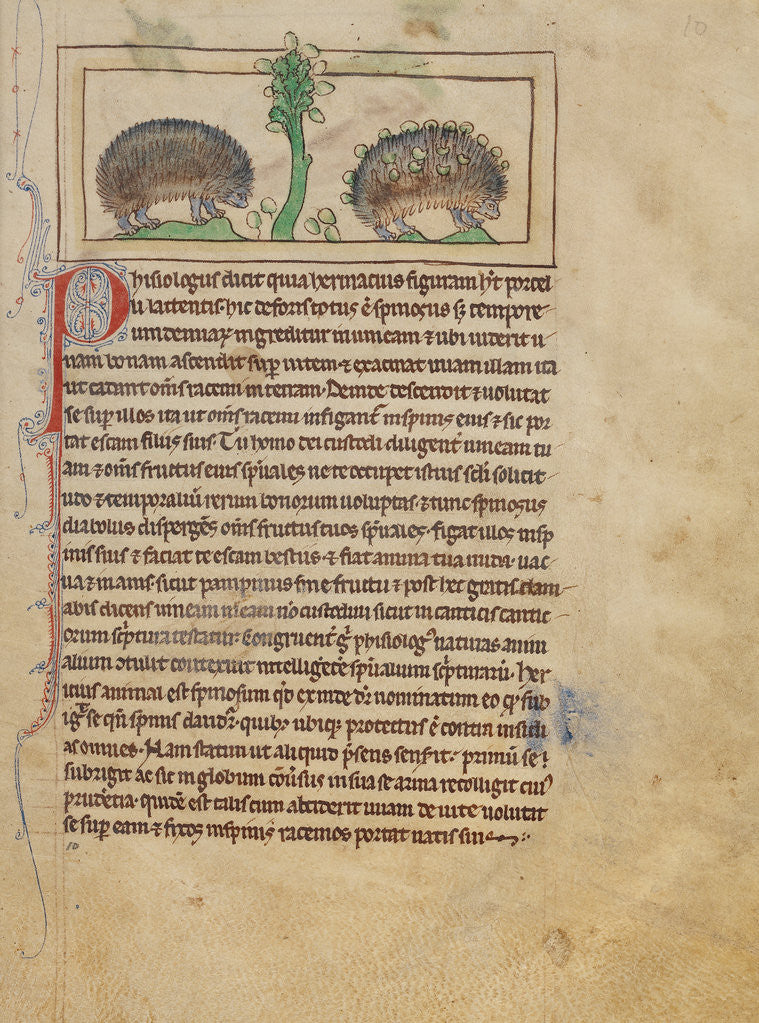 10
Phisiologus dicit quia herinacius figuram hꝫ porcel
li lactentis. hic deforis totus ē spinosus sꝫ tempore
uindemiaꝝ ingreditur in uineam ⁊ ubi uiderit u
uam bonam ascendit suꝑ uitem ⁊ exacinat uuam illam ita
ut cadant om̄s racemi in terram. Deinde descendit ⁊ uolutat
se suꝑ illos ita ut om̄s racemi infigant̄ in spinis eius ⁊ sic por
tat escam filiis suis. Tu homo dei custodi diligent̄ uineam tu
am ⁊ om̄s fructus eius sp̄uales ne te occupet istius scl̄i sollicit
udo ⁊ temporaliū rerum bonorum uoluptas ⁊ tunc spinosus
diabolus disperges̄ om̄s fructus tuos sp̄uales. figat illos in sp
inis suis ⁊ faciat te escam bestiis. ⁊ fiat anima tua nuda. uac
ua ⁊ inanis. sicut pampinus sine fructu ⁊ post hec gratis clam
abis dicens uineam meam nō custodiui sicut in canticis cantic
orum sc̄ptura testatur. Congruent̄ gͦ phisiologꝰ naturas anim
alium ↄtulit ⁊ contexuit intelligētie sp̄ualium sc̄pturarū. Her
icius animal est spinosum qd̓ exinde dr̄ nominatum eo qd̓ sub
igͣt se qn̄ spinis claudit̓. quibꝫ ubiqꝫ protectus ē contra insidi
as omnes. Nam statim ut aliquid p̄sens senserit. primū se
subrigit ac sic in globum cōuersus in sua se arma recolligit cuiꝰ
prudētia. quidē est talis cum absciderit uuam de uite uolutat
se suꝑ eam ⁊ fixos in spinis racemos portat natis suis
10